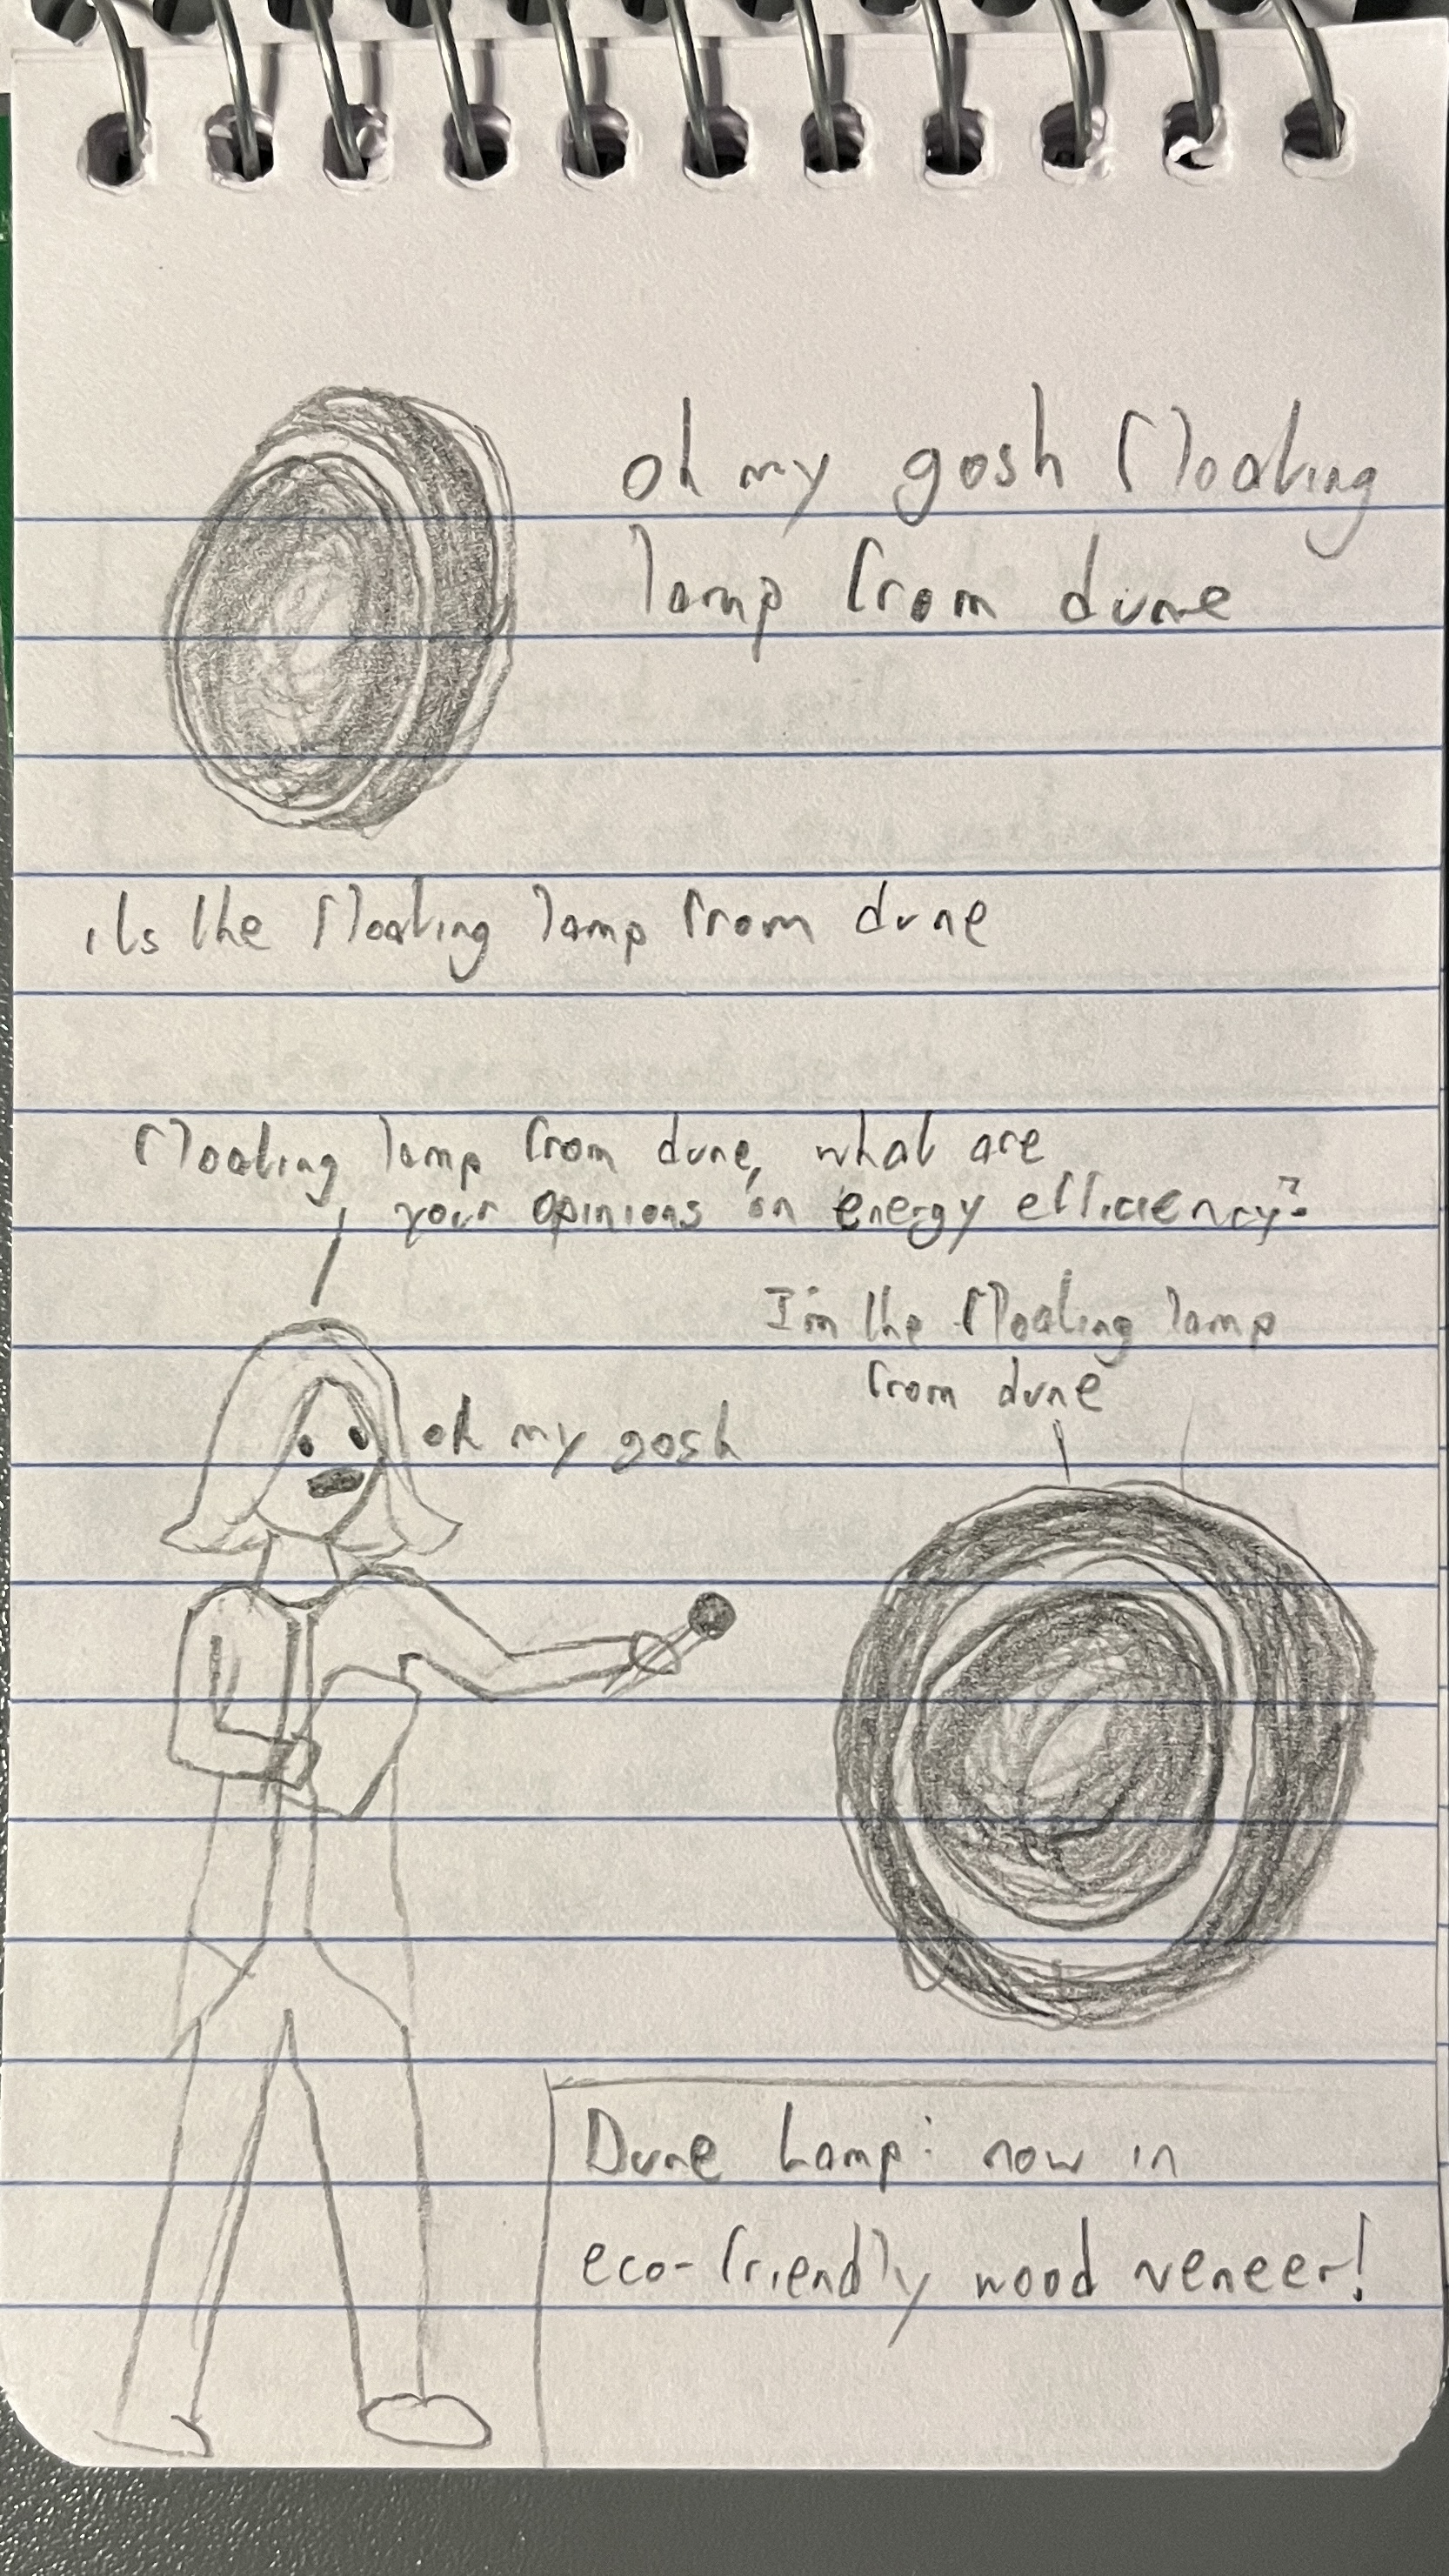 oh my gosh floating
lamp from dune
its the floating lamp from dune
floating lamp from dune, what are
your opinions on energy efficiency?
I'm the floating lamp
from dune
oh my gosh
Dune Lamp: now in
eco-friendly wood veneer!